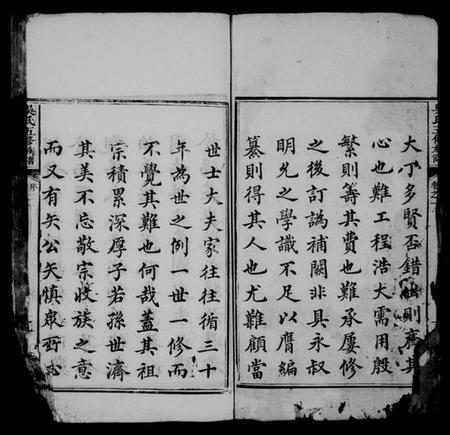 大丁多賢否錯出則齊其
心也難工程浩大需用殷
繁則籌其費也難承屢修
之後訂譌補闕非具永叔
明允之學識不足以膺編
纂則得其人也尤難顧當
世士大夫家往往循三十
年為世之例一世一修而
不覺其難也何哉蓋其祖
宗積累深厚子若孫世濟
其美不忘敬宗收族之意
而又有矢公矢慎眾所
吳氏五修族譜
序